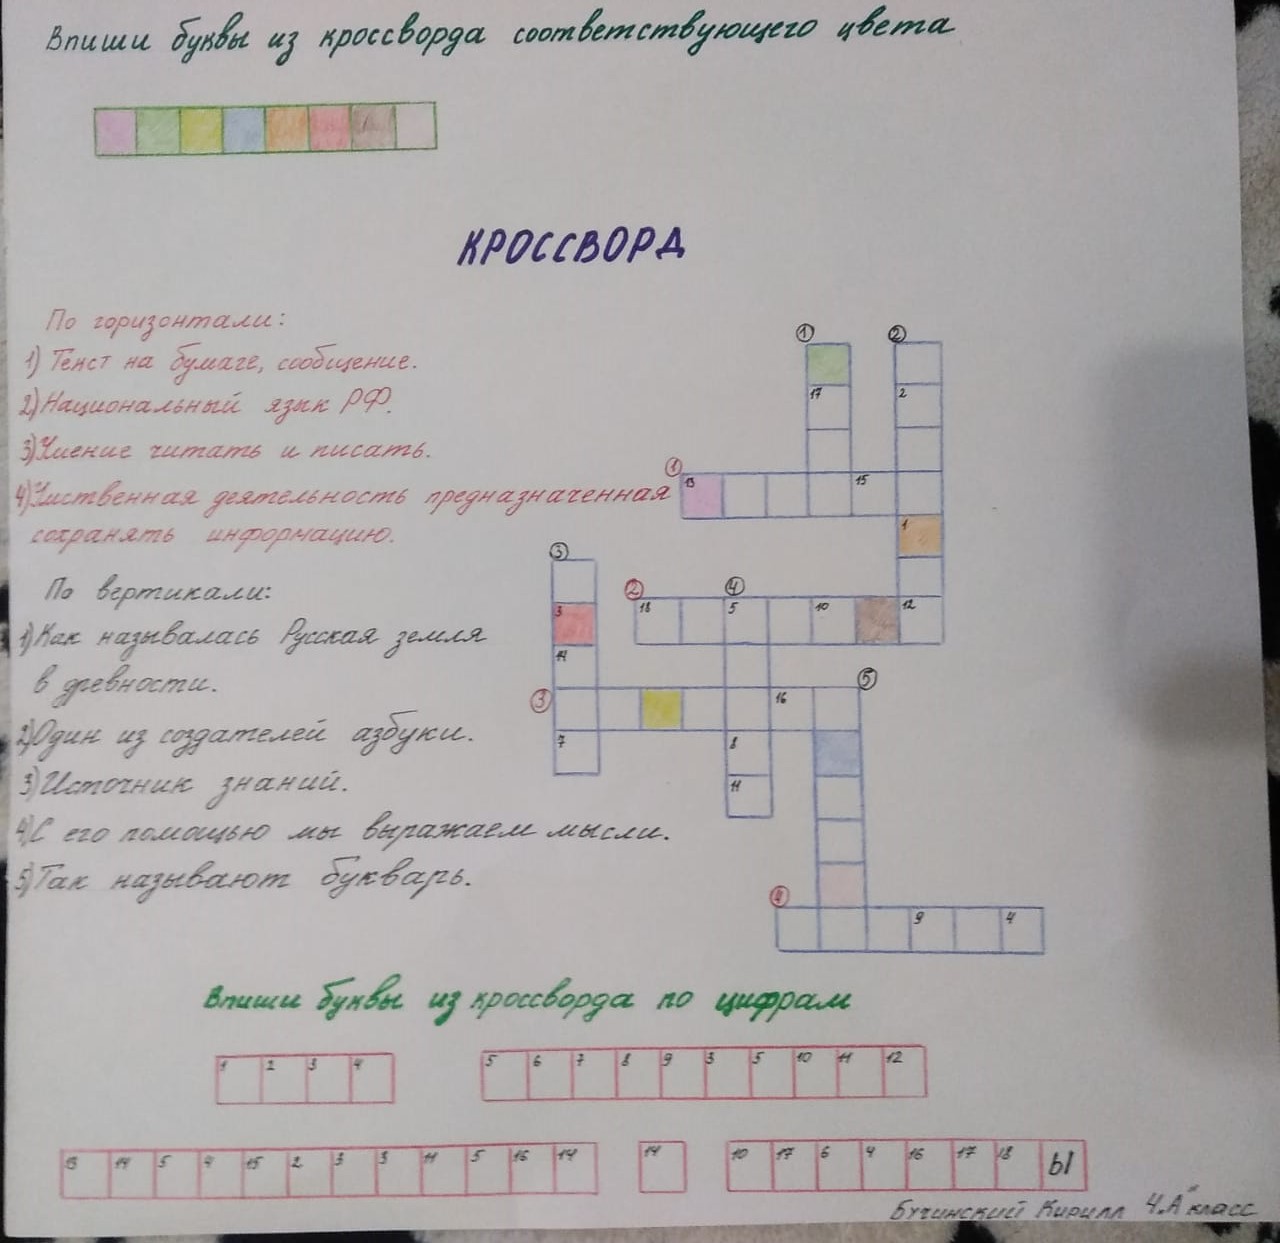 Впиши буквы из кроссворда соответствующего цвета
КРОССВОРД
По горизонтали:
1) Текст на бумаге, сообщение.
2) Национальный язык РФ.
3) Умение читать и писать.
4) Умственная деятельность предназначенная
сохранять информацию.
По вертикали:
1) Как называлась Русская земля
в древности.
2) Один из создателей азбуки.
3) Источник знаний.
4) С его помощью мы выражаем мысли.
5) Так называют букварь.
1 2
17 2
1 13 15
1
3
2 4
3 18 5 10 12
14
5
3 16
7 8
11
4
9 4
Впиши буквы из кроссворда по цифрам
1 2 3 4 5 6 7 8 9 3 5 10 11 12
13 14 5 4 15 2 3 3 11 5 16 14 14 10 17 6 4 16 17 18 Ы
Бучинский Кирилл 4 "А" класс